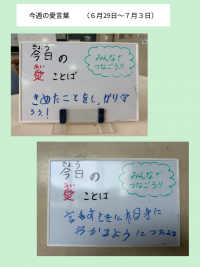 今週の愛言葉　（６月29日～７月３日）
きょう
今日の
あい
愛ことば
みんなで
つなごう!!
きめたことをしっかり守
ろう！
きょう
今日の
あい
愛ことば
みんなで
つなごう!!
話すときに相手に
わかるようにつたえる